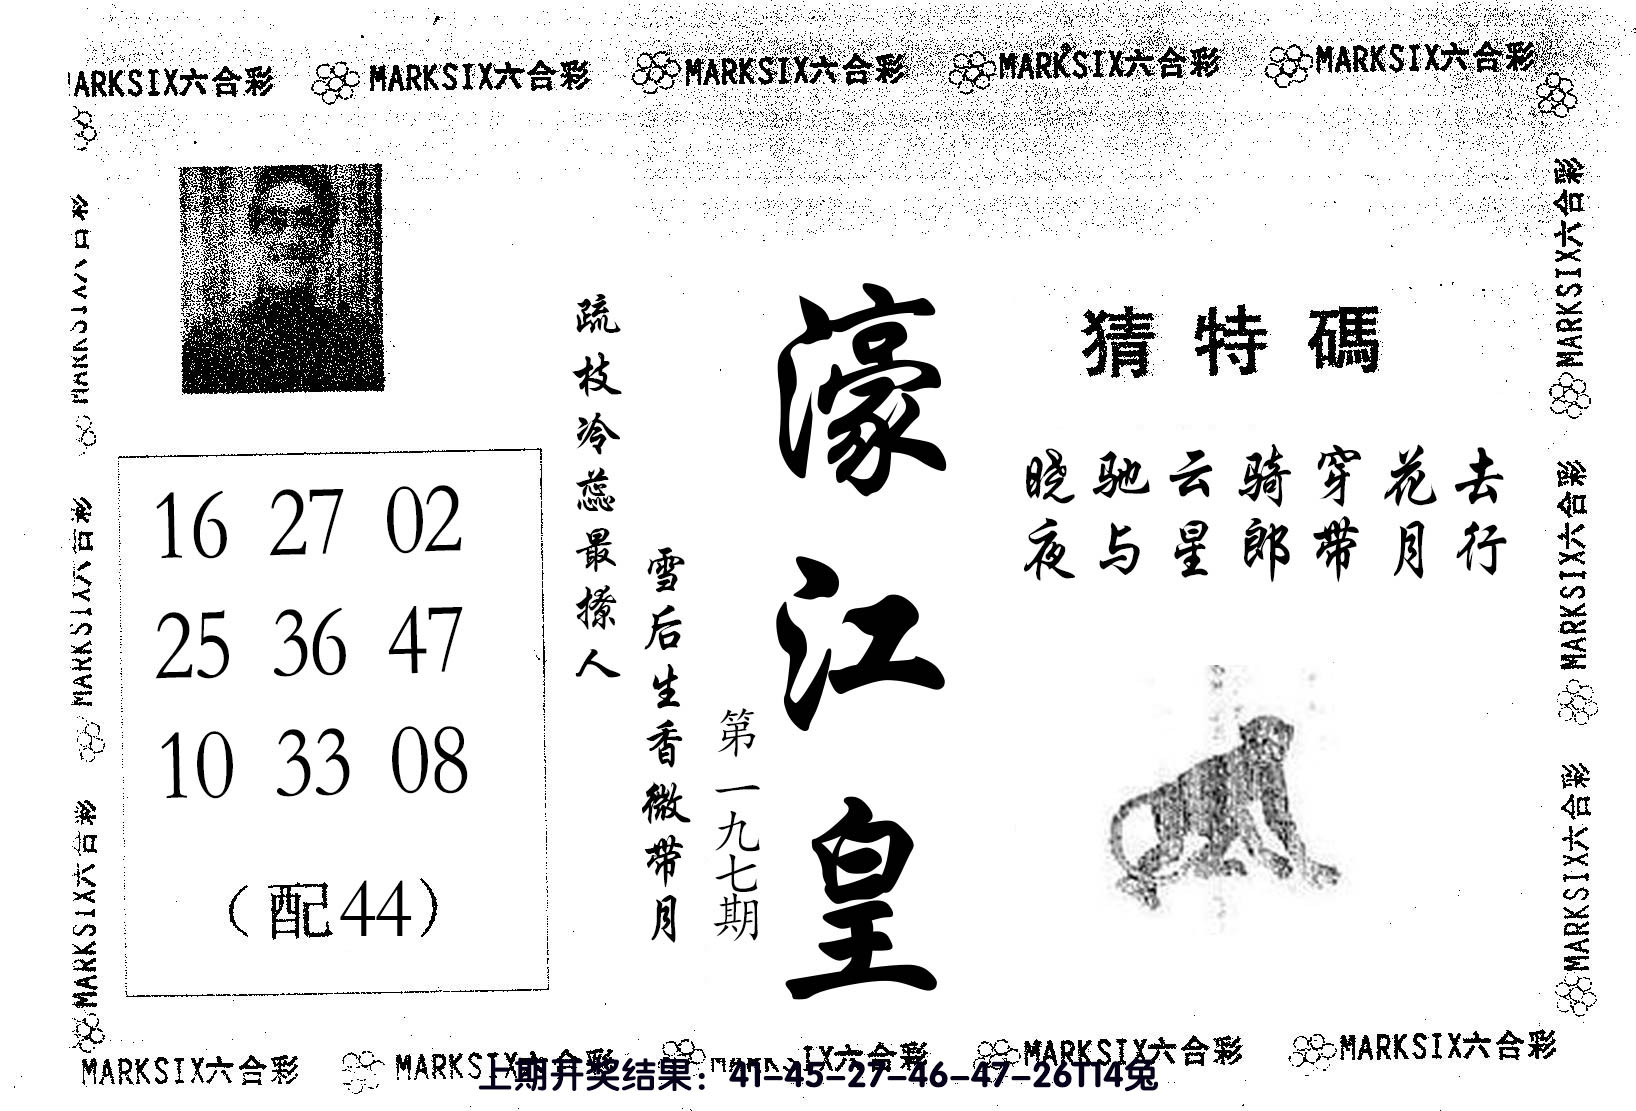 MARKSIX六合彩 MARKSIX六合彩 MARKSIX六合彩 MARKSIX六合彩
猜特碼
晓驰云骑穿花去
夜与星郎带月行
濠江皇
第一九七期
疏枝冷蕊最撩人
雪后生香微带月
16 27 02
25 36 47
10 33 08
（配44）
MARKSIX六合彩
MARKSIX六合彩
MARKSIX六合彩
MARKSIX六合彩
MARKSIX六合彩
MARKSIX六合彩
MARKSIX六合彩 MARKSIX六合彩 MARKSIX六合彩 MARKSIX六合彩
上期开奖结果：41-45-27-46-47-26T14兔